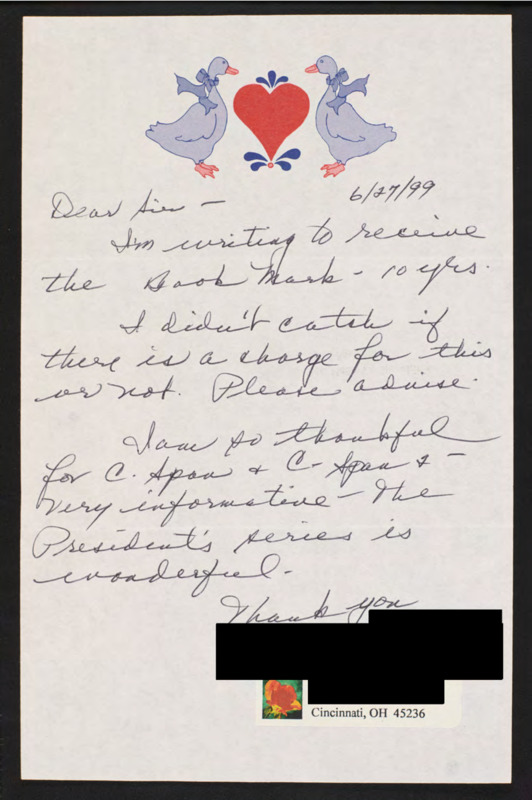 6/27/99
Dear Sir -
I'm writing to receive
the Book Mark - 10 yrs.
I didn't catch if
there is a charge for this
or not. Please advise.
I am so thankful
for C. Span & C- Span 2 -
Very informative - The
President's series is
wonderful.
Thank you
Cincinnati, OH 45236